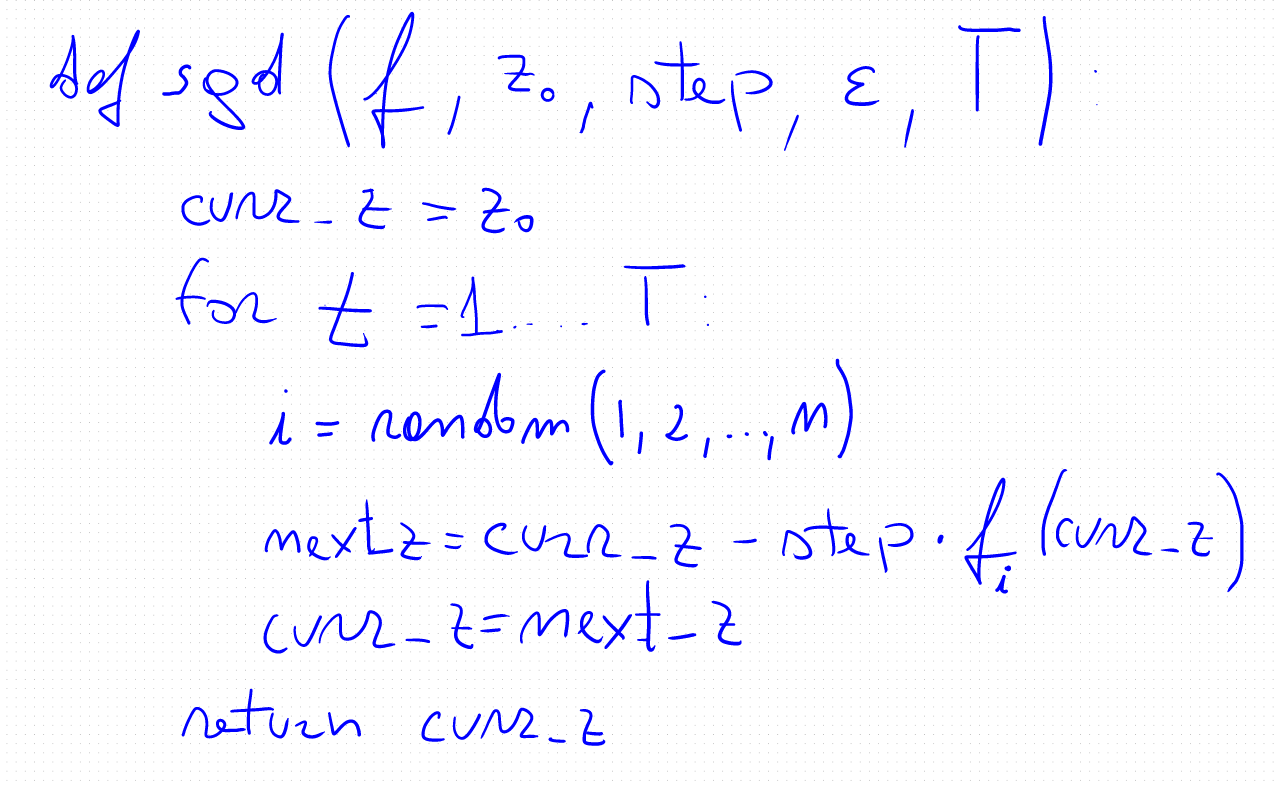 def sgd (f, z₀, step, ε, T):
curr_z = z₀
for t = 1.... T:
i = random (1, 2, ..., n)
next_z = curr_z - step · fᵢ (curr_z)
curr_z = next_z
return curr_z